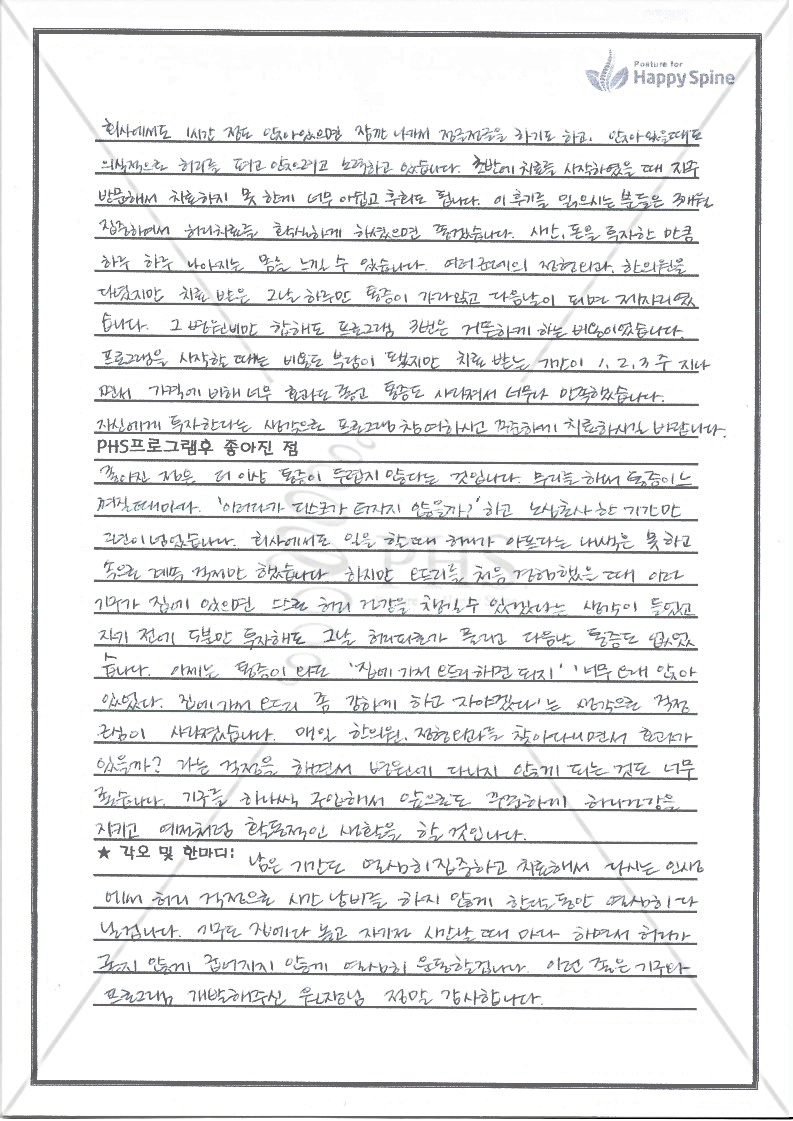 Posture for
Happy Spine
회사에서도 1시간 정도 앉아있으면 잠깐 나가서 하기도 하고, 앉아있을때도
의식적으로 허리를 펴고 앉으려고 노력하고 있습니다. 초반에 치료를 시작하였을 때 자주
방문해서 치료하지 못 한게 너무 아쉽고 후회도 됩니다. 이 후기를 읽으시는 분들은 3개월
집중하여서 허리치료를 확실하게 하셨으면 좋겠습니다. 시간, 돈을 투자한 만큼
하루 하루 나아지는 몸을 느낄 수 있습니다. 여러군데의 정형외과, 한의원을
다녔지만 치료 받은 그날 하루만 통증이 가라앉고 다음날이 되면 제자리였
습니다. 그 병원비만 합해도 프로그램 3번은 거뜬하게 하는 비용이었습니다.
프로그램을 시작할 때는 비용도 부담이 됐지만 치료 받는 기간이 1, 2, 3 주 지나
면서 가격에 비해 너무 효과도 좋고 통증도 사라져서 너무나 만족했습니다.
자신에게 투자한다는 생각으로 프로그램 참여하시고 꾸준하게 치료하시길 바랍니다.
PHS프로그램후 좋아진 점
좋아진 점은 더 이상 통증이 두렵지 않다는 것입니다. 무리를 하며 통증이 느
껴질때마다. '이러다가 디스크가 터지지 않을까?' 하고 노심초사 한 기간만
2년이 넘었습니다. 회사에서도 일을 할때 허리가 아프다는 내색은 못 하고
속으로 계속 걱정만 했습니다 하지만 으뜨리를 처음 경험했을 때 이런
기구가 집에 있으면 스스로 허리 건강을 챙길 수 있겠다라는 생각이 들었고
자기 전에 5분만 투자해도 그날 허리피로가 풀리고 다음날 통증도 없었
습니다. 이제는 통증이 와도 '집에 가서 으뜨리하면 되지' '너무 오래 앉아
있었다. 집에 가서 으뜨리 좀 강하게 하고 자야겠다'는 생각으로 걱정
근심이 사라졌습니다. 매일 한의원, 정형외과를 찾아다니면서 효과가
있을까? 라는 걱정을 하면서 병원에 다니지 않게 되는 것도 너무
좋습니다. 기구를 하나씩 구입해서 앞으로도 꾸준하게 허리건강을
지키고 예전처럼 활동적인 생활을 할 것입니다.
★ 각오 및 한마디: 남은 기간도 열심히 집중하고 치료해서 다시는 인생
에서 허리 걱정으로 시간 낭비를 하지 않게 한다는 동안 열심히 다
닐겁니다. 기구도 집에다 놓고 자기전 시간날 때 마다 하면서 허리가
굳지 않게 굽어지지 않게 열심히 운동할겁니다. 이런 좋은 기구와
프로그램 개발해주신 원장님 정말 감사합니다.
PHS